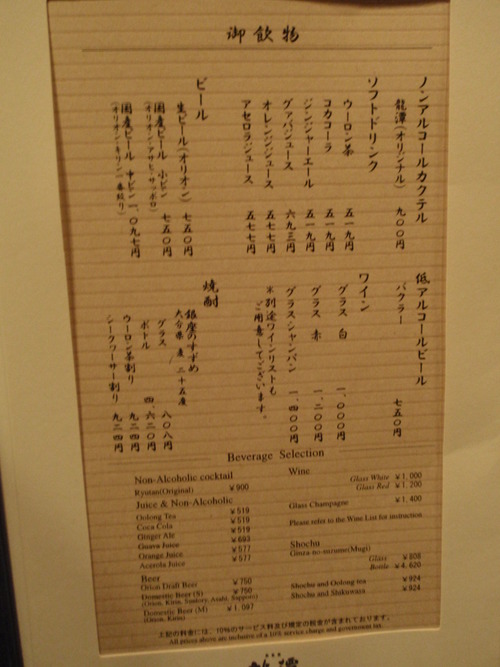 御飲物
ノンアルコールカクテル
龍潭(オリジナル) 九〇〇円
ソフトドリンク
ウーロン茶 五一九円
コカコーラ 五一九円
ジンジャーエール 五一九円
グァバジュース 六九三円
オレンジジュース 五七七円
アセロラジュース 五七七円
ビール
生ビール(オリオン) 七五〇円
国産ビール 小ビン 七五〇円
(オリオン・アサヒ・サッポロ)
国産ビール 中ビン 一、〇九七円
(オリオン・キリン一番絞り)
低アルコールビール
バクラー 七五〇円
ワイン
グラス 白 一、〇〇〇円
グラス 赤 一、二〇〇円
グラスシャンパン 一、四〇〇円
※別途ワインリストも
ご用意してございます。
焼酎
銀座のすずめ
大分県産 二十五度
グラス 八〇八円
ボトル 四、六二〇円
ウーロン茶割り 九二四円
シークワーサー割り 九二四円
Beverage Selection
Non-Alcoholic cocktail
Ryutan(Original) ¥900
Juice & Non-Alcoholic
Oolong Tea ¥519
Coca Cola ¥519
Ginger Ale ¥519
Guava Juice ¥693
Orange Juice ¥577
Acerola Juice ¥577
Beer
Orion Draft Beer ¥750
Domestic Beer (S) ¥750
(Orion, Kirin, Suntory, Asahi, Sapporo)
Domestic Beer (M) ¥1,097
(Orion, Kirin)
Wine
Glass White ¥1,000
Glass Red ¥1,200
Glass Champagne ¥1,400
Please refer to the Wine List for instruction
Shochu
Ginza-no-suzume(Mugi)
Glass ¥808
Bottle ¥4,620
Shochu and Oolong tea ¥924
Shochu and Shikuwasa ¥924
上記の料金には、10%のサービス料及び規定の税金が含まれております。
All prices above are inclusive of a 10% service charge and government tax.